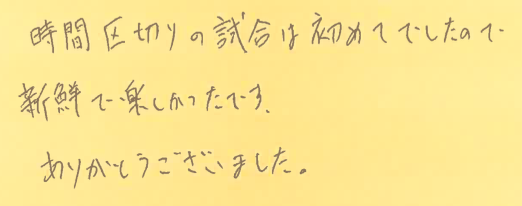 時間区切りの試合は初めてでしたので
新鮮で楽しかったです、
ありがとうございました。